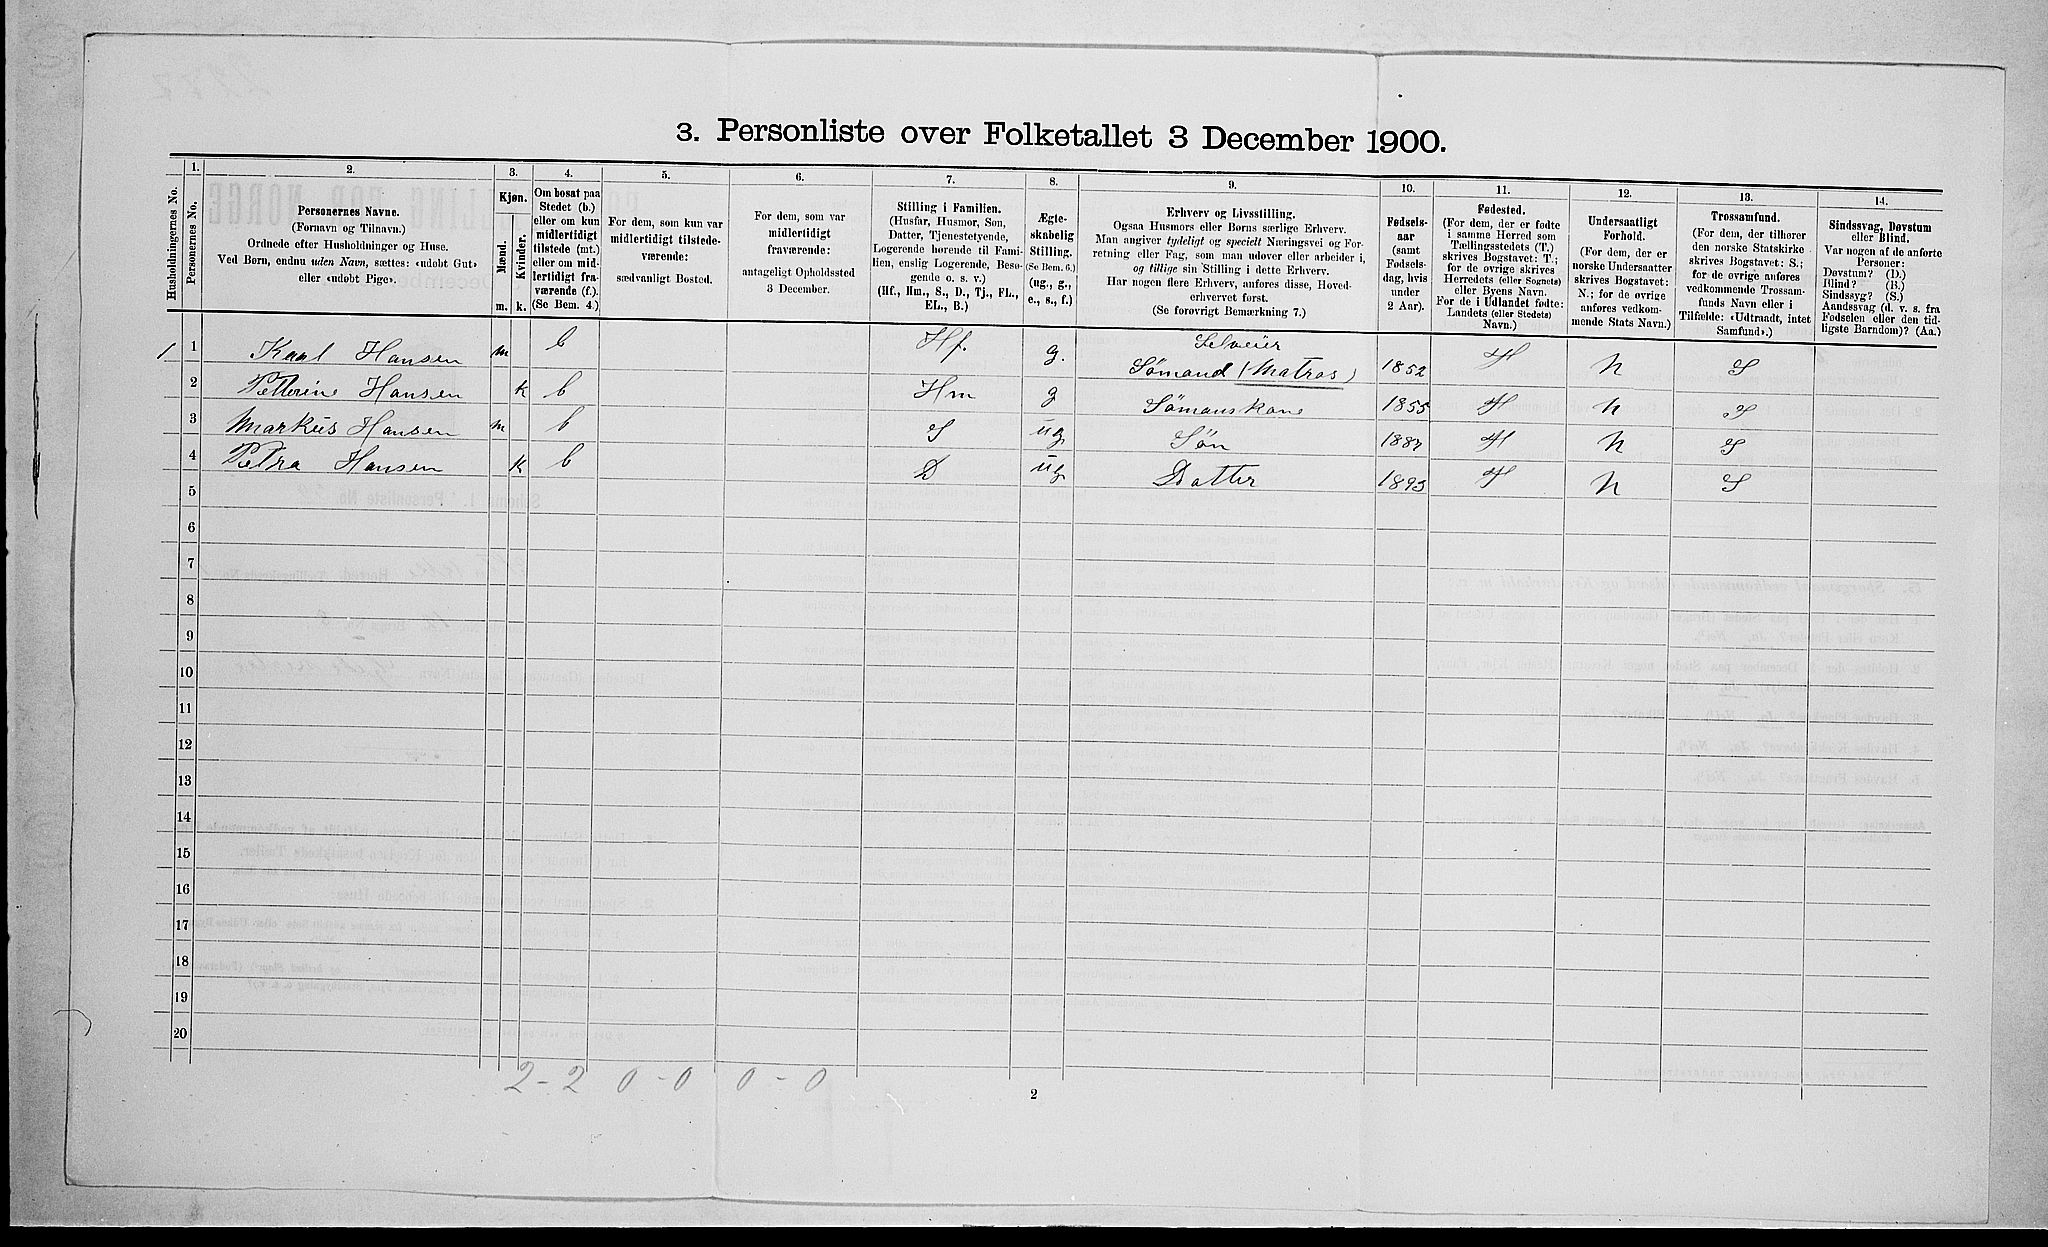 3. Personliste over Folketallet 3 December 1900.
Husholdningernes No.
1.
Personernes No.
2.
Personernes Navne.
(Fornavn og Tilnavn.)
Ordnede efter Husholdninger og Huse.
Ved Børn, endnu uden Navn, sættes: «udøbt Gut»
eller «udøbt Pige».
3.
Kjøn.
Mænd.
Kvinder.
m. k.
4.
Om bosat paa
Stedet (b.)
eller om kun
midlertidigt
tilstede (mt.)
eller om mid-
lertidigt fra-
værende (f.).
(Se Bem. 4.)
5.
For dem, som kun var
midlertidigt tilstede-
værende:
sædvanligt Bosted.
6.
For dem, som var
midlertidigt
fraværende:
antageligt Opholdssted
3 December.
7.
Stilling i Familien.
(Husfar, Husmor, Søn,
Datter, Tjenestetyende,
Logerende hørende til Fami-
lien, enslig Logerende, Besø-
gende o. s. v.)
(Hf., Hm., S., D., Tj., FL.,
EL., B.)
8.
Ægte-
skabelig
Stilling.
(Se Bem. 6.)
(ug., g.,
e., s., f.)
9.
Erhverv og Livsstilling.
Ogsaa Husmors eller Børns særlige Erhverv.
Man angiver tydeligt og specielt Næringsvei og For-
retning eller Fag, som man udøver eller arbeider i,
og tillige sin Stilling i dette Erhverv.
Har nogen flere Erhverv, anføres disse, Hoved-
erhvervet først.
(Se forøvrigt Bemærkning 7.)
10.
Fødsels-
aar
(samt
Fødsels-
dag, hvis
under
2 Aar).
11.
Fødested.
(For dem, der er fødte
i samme Herred som
Tællingsstedets (T.)
skrives Bogstavet: T.;
for de øvrige skrives
Herredets (eller Sognets)
eller Byens Navn.
For de i Udlandet fødte:
Landets (eller Stedets)
Navn.)
12.
Undersaatligt
Forhold.
(For dem, der er
norske Undersaatter
skrives Bogstavet:
N.; for de øvrige
anføres vedkom-
mende Stats Navn.)
13.
Trossamfund.
(For dem, der tilhører
den norske Statskirke
skrives Bogstavet: S.;
for de øvrige anføres
vedkommende Trossam-
funds Navn eller i
Tilfælde: «Udtraadt, intet
Samfund».)
14.
Sindssvag, Døvstum
eller Blind.
Var nogen af de anførte
Personer:
Døvstum? (D.)
Blind? (B.)
Sindssyg? (S.)
Aandssvag (d. v. s. fra
Fødselen eller den tid-
ligste Barndom)? (Aa.)
1 1 Karl Hansen m b Hf. g. Selveier
Sømand (Matros) 1852 N S
2 Petterine Hansen k b Hm g Sømanskone 1855 N S
3 Markus Hansen m b S ug Søn N S
4 Petra Hansen k b D ug Datter 1893 N S
5
6
7
8
9
10
11
12
13
14
15
16
17
18
19
20
2 - 2 0 - 0 0 - 0
2